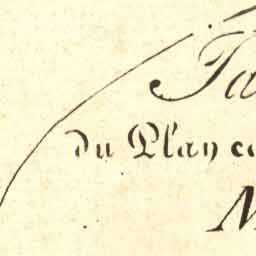 Ta
du Plan ca
M